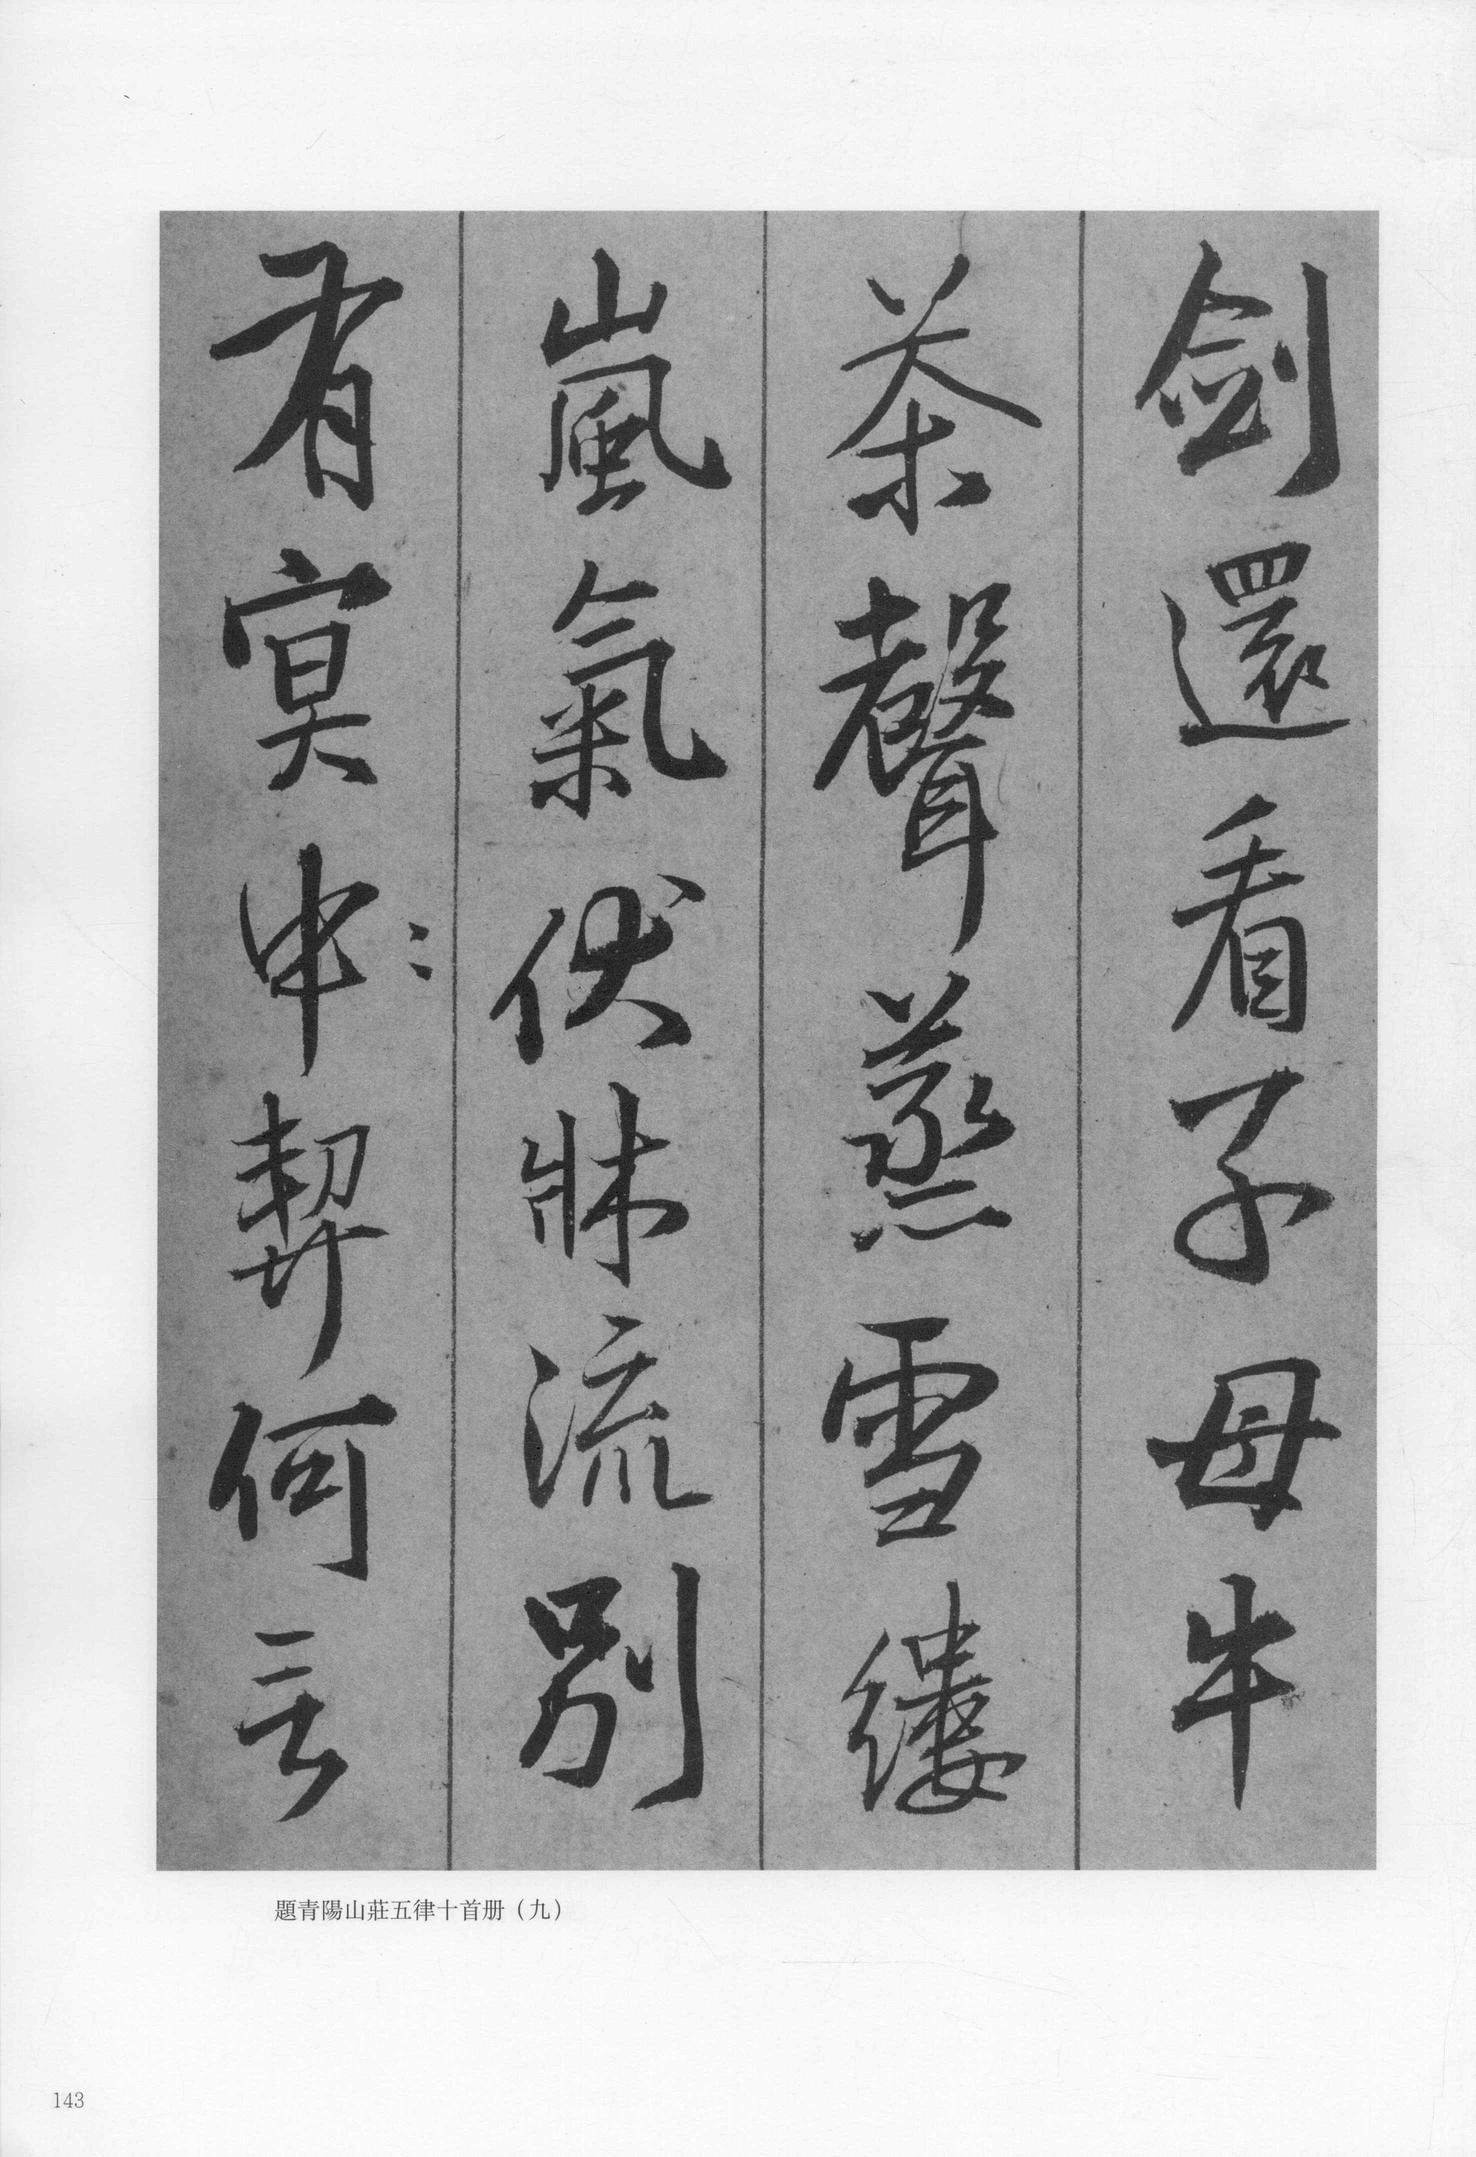 劍還看子母牛
茶聲蒸雪縷
嵐氣伏牀流別
有冥申契何言
題青陽山莊五律十首册（九）
143